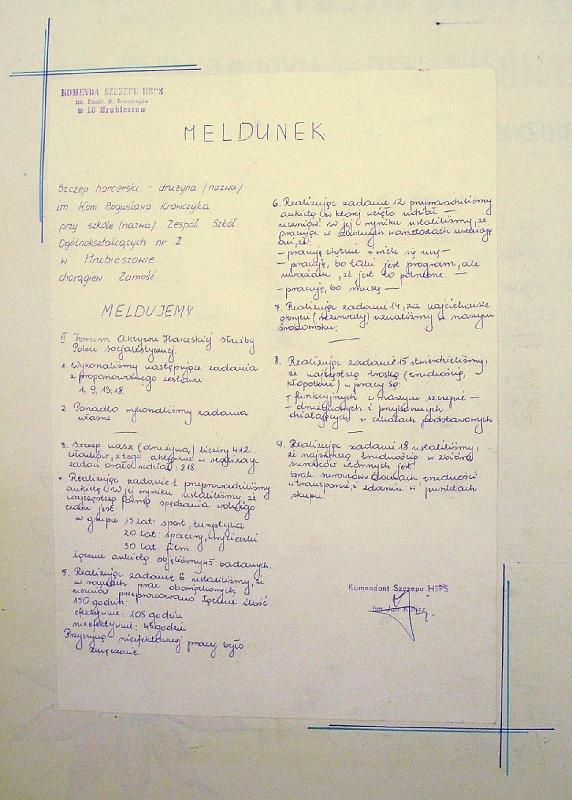 KOMENDA SZCZEPU HSPS
im. Kmdr. B. Krawczyka
w LO Hrubieszów
MELDUNEK
Szczep harcerski - drużyna (nazwa)
im Kom Bogusława Krawczyka
przy szkole (nazwa) Zespół Szkół
Ogólnokształcących nr 2
w Hrubieszowie
chorągiew Zamość
MELDUJEMY
II Forum Aktywu Harcerskiej Służby
Polsce Socjalistycznej.
1. Wykonaliśmy następujące zadania
z proponowanego zestawu
1, 9, 13, 18.
2. Ponadto wykonaliśmy zadania
własne —
3. Szczep nasz (drużyna) liczy 412
członków, z tego aktywnie w realizacji
zadań brało udział: 218
Realizując zadanie 1 przeprowadziliśmy
ankietę w jej wyniku ustaliliśmy, że
najczęstszą formą spędzania wolnego
czasu jest
w grupie 15 lat: sport, turystyka
20 lat spacery,
30 lat film
łącznie ankietą objęliśmy 45 badanych.
5. Realizując zadanie 6 ustaliliśmy, że
w naszych
uczniów przepracowano łącznie ilość
150 godzin:
efektywnie: 105 godzin
nieefektywnie: 45 godzin
Przyczyną nieefektywnej pracy było
zmęczenie.
6. Realizując zadanie 12 przeprowadziliśmy
ankietę, w której wzięło udział —
uczniów. W jej wyniku ustaliliśmy, że
pracując w szkolnych warsztatach uważają
oni, że:
- pracuję chętnie i nich się uczy —
- pracuję, bo taki jest program, ale
uważam, że jest to potrzebne —
- pracuję, bo muszę —
7. Realizując zadanie 14, za najciekawsze
uznaliśmy w naszym
środowisku: —
8. Realizując zadanie 15 stwierdziliśmy,
że najczęstszą troską (trudnością,
kłopotem) w pracy są:
- funkcyjnych w naszym szczepie —
- drużynowych i przybocznych
działających w szkołach podstawowych
9. Realizując zadanie 18 ustaliliśmy,
że największą trudnością w zbiórce
surowców wtórnych jest
brak surowców w domach, trudności
w transporcie, zdaniu w punktach
skupu.
Komendant Szczepu HSPS